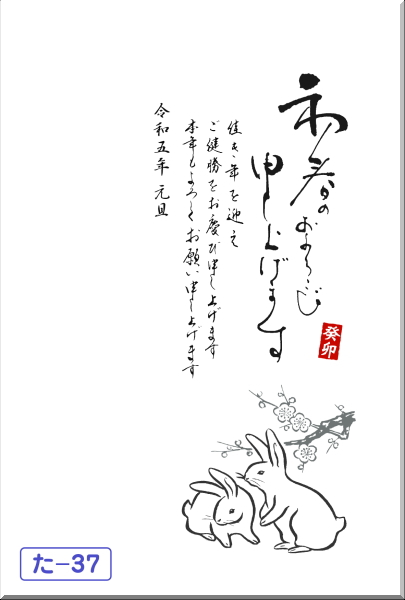 初春のおよろこび
申し上げます
癸卯
佳き年を迎え
ご健勝をお慶び申し上げます
本年もよろしくお願い申し上げます
令和五年 元旦
た-37